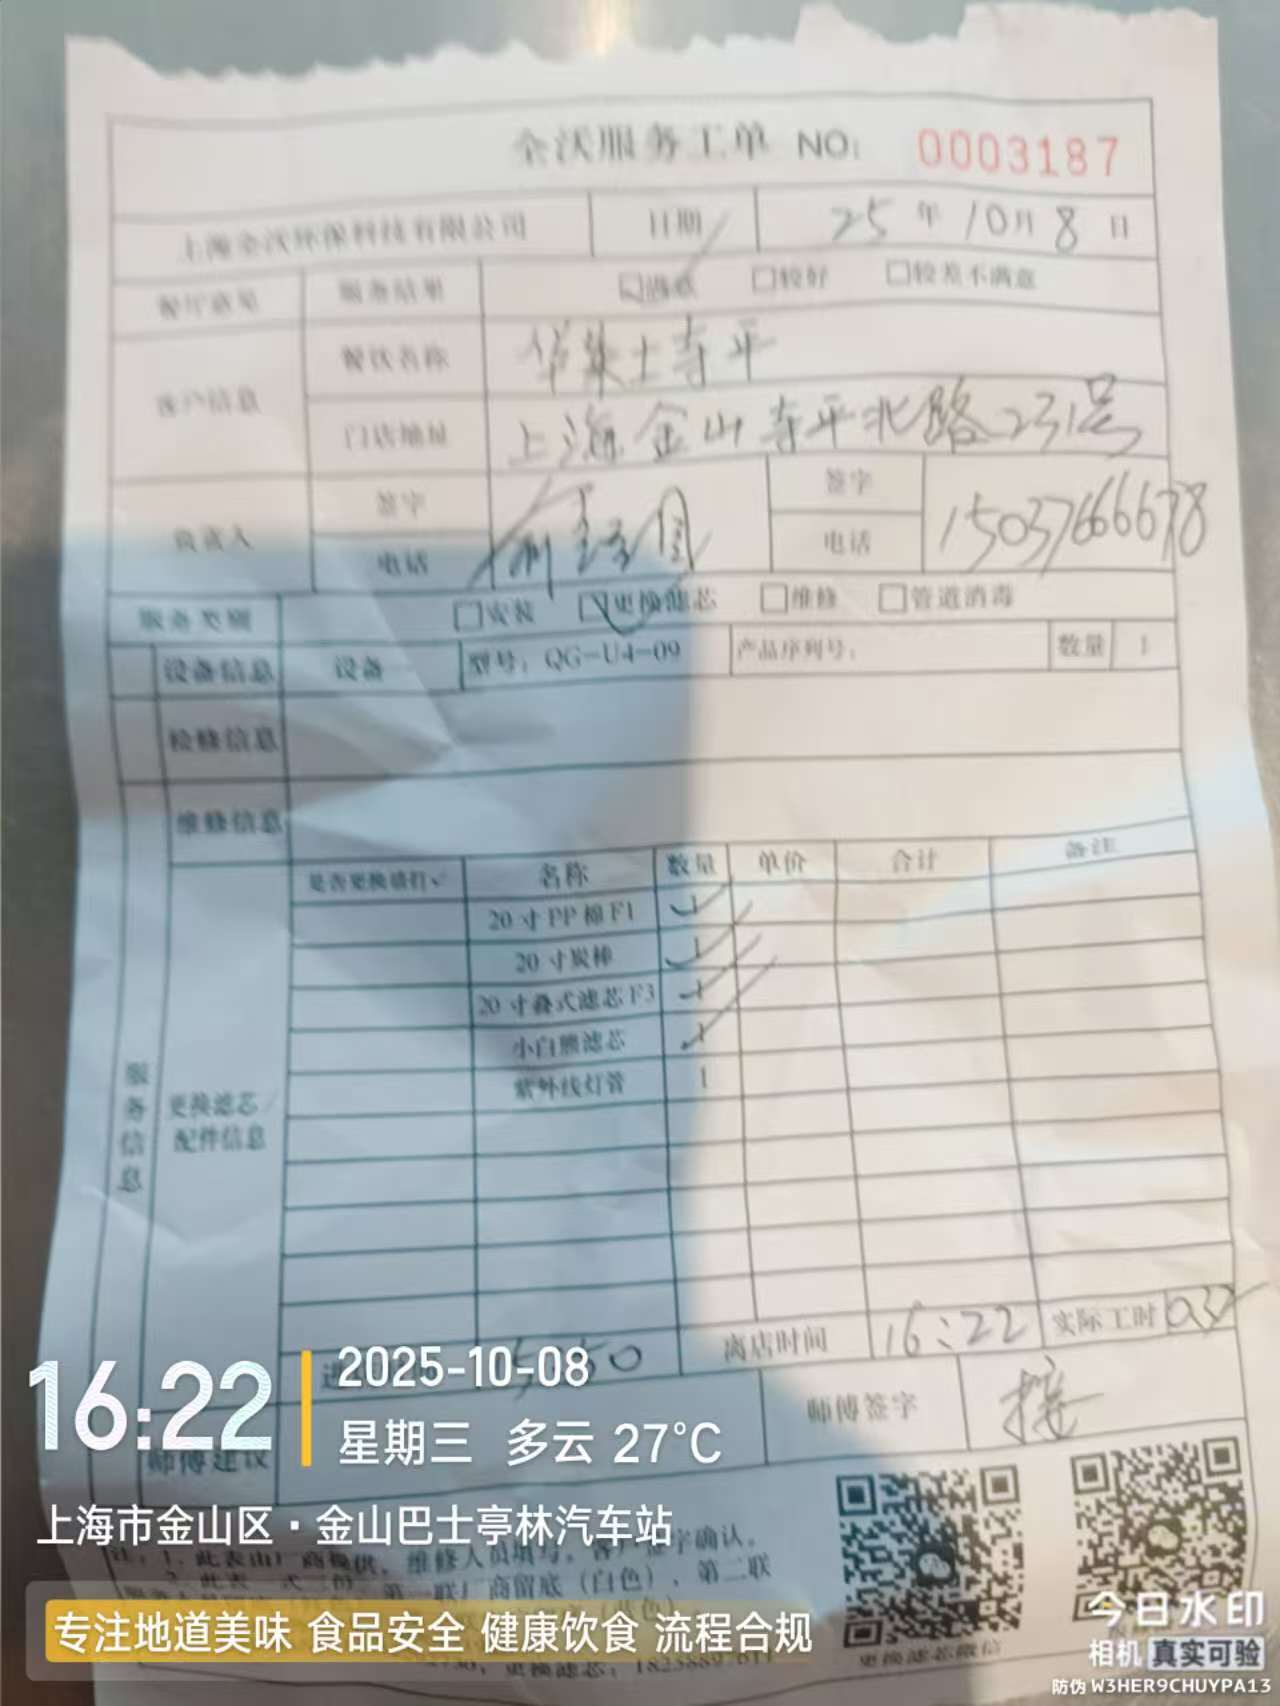 全沃服务工单 NO: 0003187
上海全沃环保科技有限公司 日期 25年10月8日
餐厅意见 服务结果 ☑满意 □较好 □较差不满意
客户信息 餐饮名称 华莱士寺平
门店地址 上海金山寺平北路231号
负责人 签字 签字
电话 电话 15037666678
服务类别 □安装 ☑更换滤芯 □维修 □管道消毒
设备信息 设备 型号: QG-U4-09 产品序列号: 数量 1
检修信息
维修信息
是否更换请打✓ 名称 数量 单价 合计 备注
20寸PP棉F1 1 ✓
20寸炭棒 1 ✓
20寸叠式滤芯F3 1 ✓
小白熊滤芯 1 ✓
紫外线灯管 1
服务信息
更换滤芯/
配件信息
进 50 离店时间 16:22 实际工时
师傅建议 师傅签字
注: 1. 此表由厂商提供, 维修人员填写, 客户签字确认.
2. 此表一式二份, 第一联厂商留底(白色), 第二联
更换滤芯:
更换滤芯微信
16:22
2025-10-08
星期三 多云 27°C
上海市金山区·金山巴士亭林汽车站
专注地道美味 食品安全 健康饮食 流程合规
今日水印
相机 真实可验
防伪 W3HER9CHUYPA13